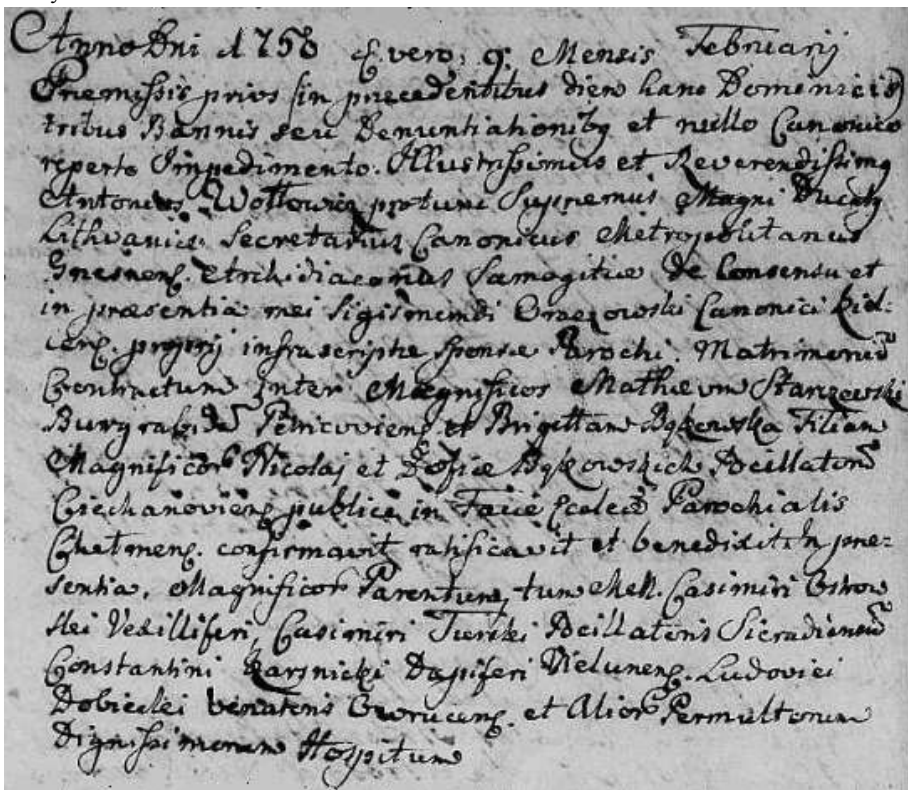 Anno Dni 1758 d. vero, 9. Mensis Februarij
Præmissis prius in precedentibus diem hanc Dominicis
tribus Bannis seu Denuntiationibq et nullo Canonico
reperto Impedimento. Illustrissimus et Reverendissimq
Antonius Wołłowicz protunc Supremus Magni Ducatq
Lithvaniæ Secretarius Canonicus Metropolitanus
Gnesnens. Archidiaconus Samogitiæ de Consensu et
in præsentia mei Sigismundi Canonici
proprij infrascriptæ sponsæ Parochi. Matrimoniũ
Contractum inter Magnificos Mathæum Starczewski
Burgrabiũ Petricoviens et Brigittam Bąkowska Filiam
Magnificor Nicolai et Zofiæ Bąkowskich Pocillatorũ
Ciechanoviens publice in Facie Ecclesiæ Parochialis
Chełmens. confirmavit ratificavit et benedixit. In præ-
sentia, Magnificor Parentum, tum Casimiri Ostrow
skei Vexilliferi, Casimiri Turski Pocillatoris Siradiensiũ
Constantini Karsnicki Dapiferi Vieluneng. Ludovici
Dobieckei Venatoris Owruceng. et Alior Permultorum
Dignissimorum Hospitum